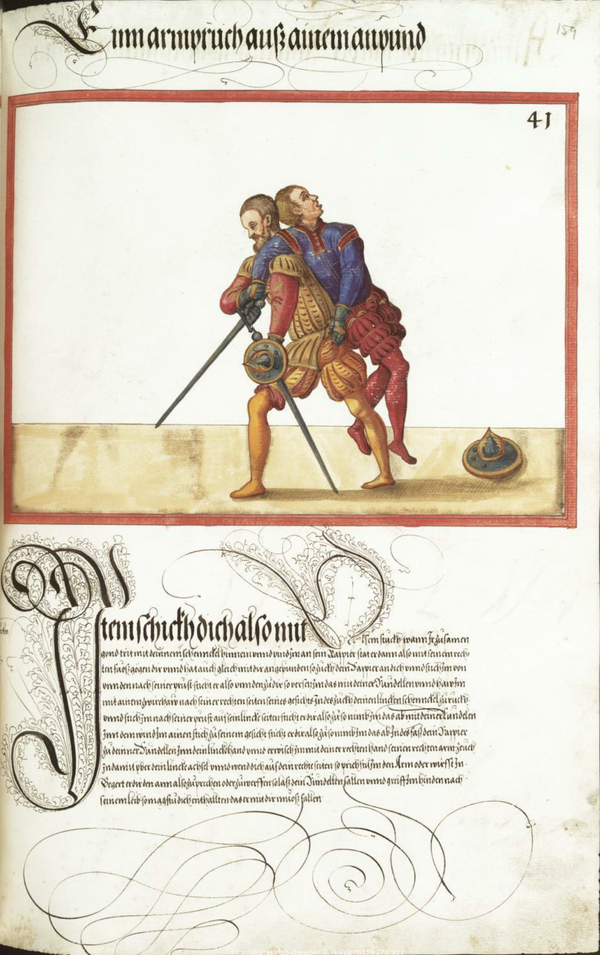 Ein armpruch auß ainem anpund
159
41
Item schickh dich also mit
disem stuckh wann Ir zusamen
gond trit mit deinnem schennckel hinnein vnnd pind Im an sein Rappier stat er dann also mit seinem rech
ten fuoß gegen dir vnnd hat auch gleich mit dir angepunden so zuckh dein Rappier an dich vnnd stich Im von
vnnden nach seiner prust sticht er also vnnden zu dir so versetz Im das mit deiner Rundellen vnnd haw Im
mit ainem zwirchaw nach seiner rechten seiten seines gesichts Indes zuckh deinen linckhen schennckel zuruckh
vnnd stich Im nach seiner prust auf sein linckhe seiten sticht er dir also zu so nim Im das ab mit deiner Rundellen
Inn dem wind Im ainen stich zu seinem gesicht sticht er dir also zu so nim Im das ab Indes faß dein Rappier
zu deiner Rundellen Inn dein linckh hannd vnnd erwisch Im mit deiner rechten hannd seinen rechten arm zeuch
In damit yber dein linckh achsel vnnd wend dich auf dein recht seiten so prichst Im den Arm oder würffst In
Begert er dir den arm also zu prechen oder zu werffen so laß dein Rundellen fallen vnnd greiff Im hinden nach
seinem leib so magstu dich enthallten das er mit dir muoß fallen